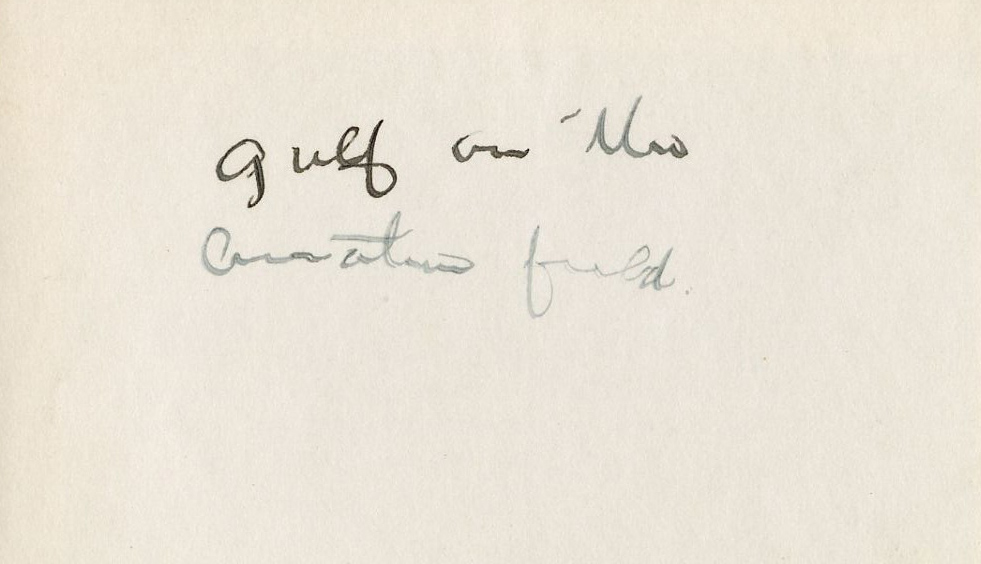 Gulf on the
Carnation field.